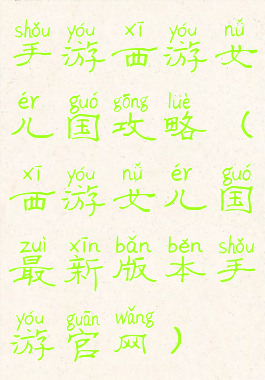 shǒu yóu xī yóu nǚ
手游西游女
ér guó gōng lüè
儿国攻略（
xī yóu nǚ ér guó
西游女儿国
zuì xīn bǎn běn shǒu
最新版本手
yóu guān wǎng
游官网）